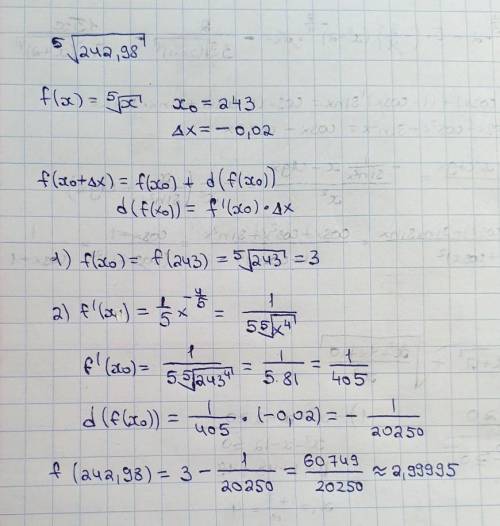 ⁵√242,98
f(x) = ⁵√x x₀ = 243
Δx = - 0,02
f(x₀+Δx) = f(x₀) + d(f(x₀))
d(f(x₀)) = f'(x₀)·Δx
1) f(x₀) = f(243) = ⁵√243 = 3
2) f'(x) = 1/5 x^(-4/5) = 1/(5 ⁵√x⁴)
f'(x₀) = 1/(5 ⁵√243⁴) = 1/(5·81) = 1/405
d(f(x₀)) = 1/405 · (-0,02) = - 1/20250
f(242,98) = 3 - 1/20250 = 60749/20250 ≈ 2,99995